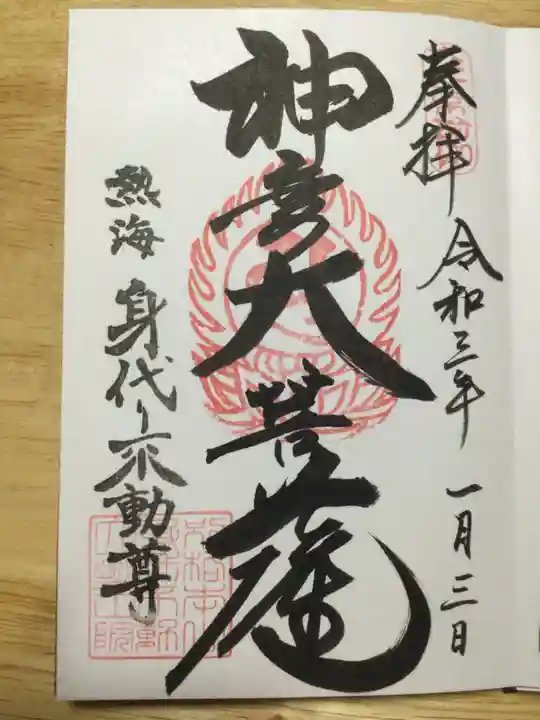 奉拝 令和三年 一月三日
神変大菩薩
熱海 身代り不動尊